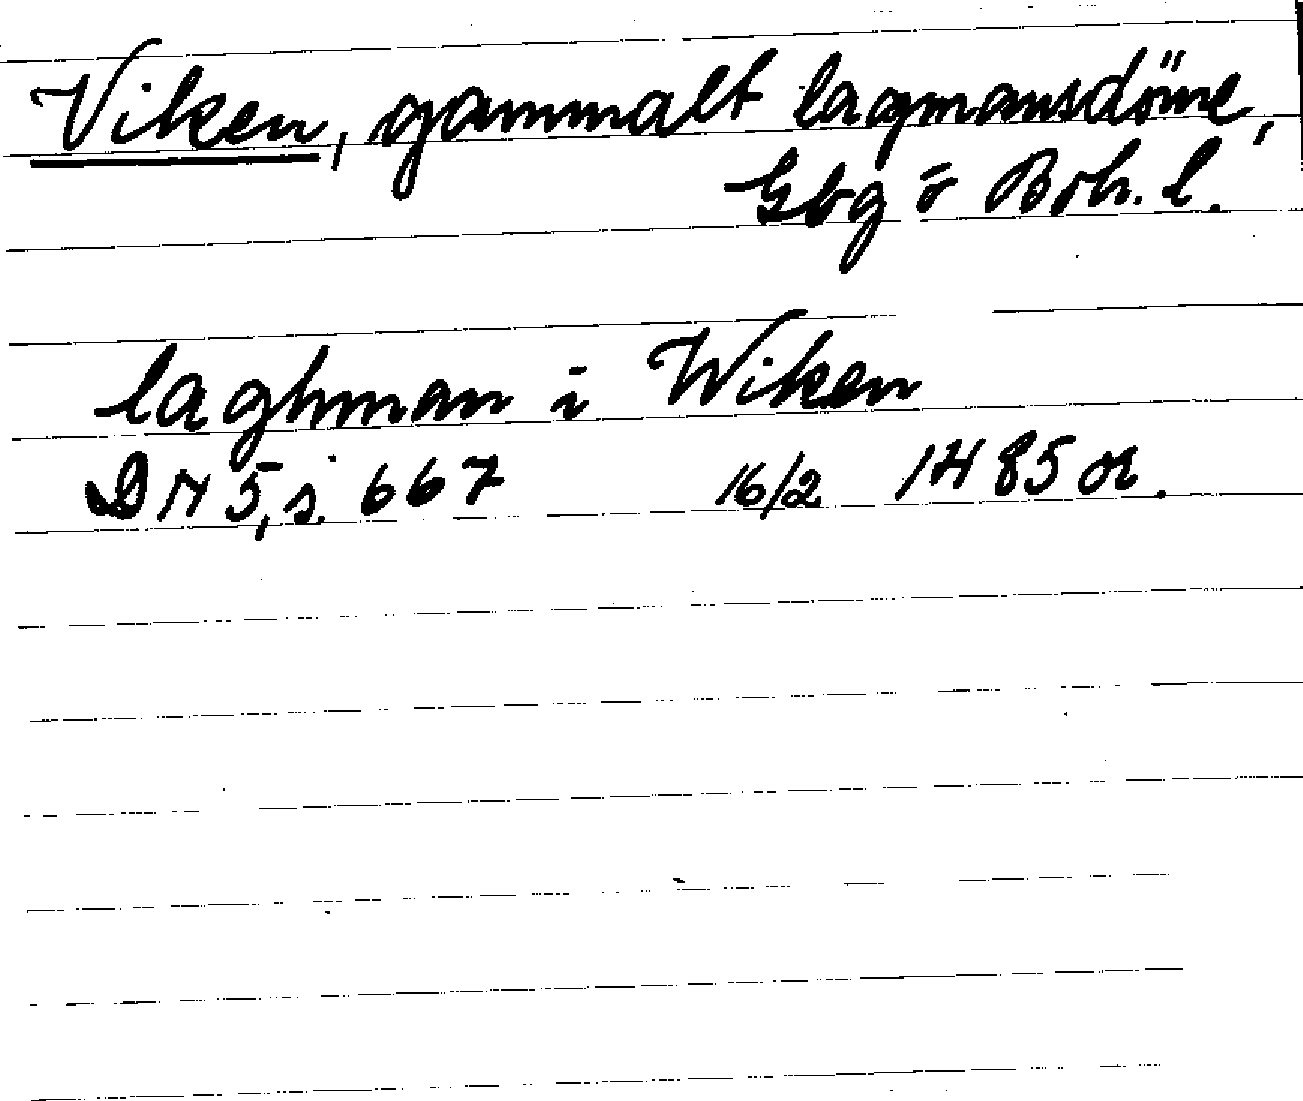 Viken, gammalt lagmansdöme,
Gbg o Boh. l.
laghman i Wiken
DN 5, s. 667 16/2 1485 or.